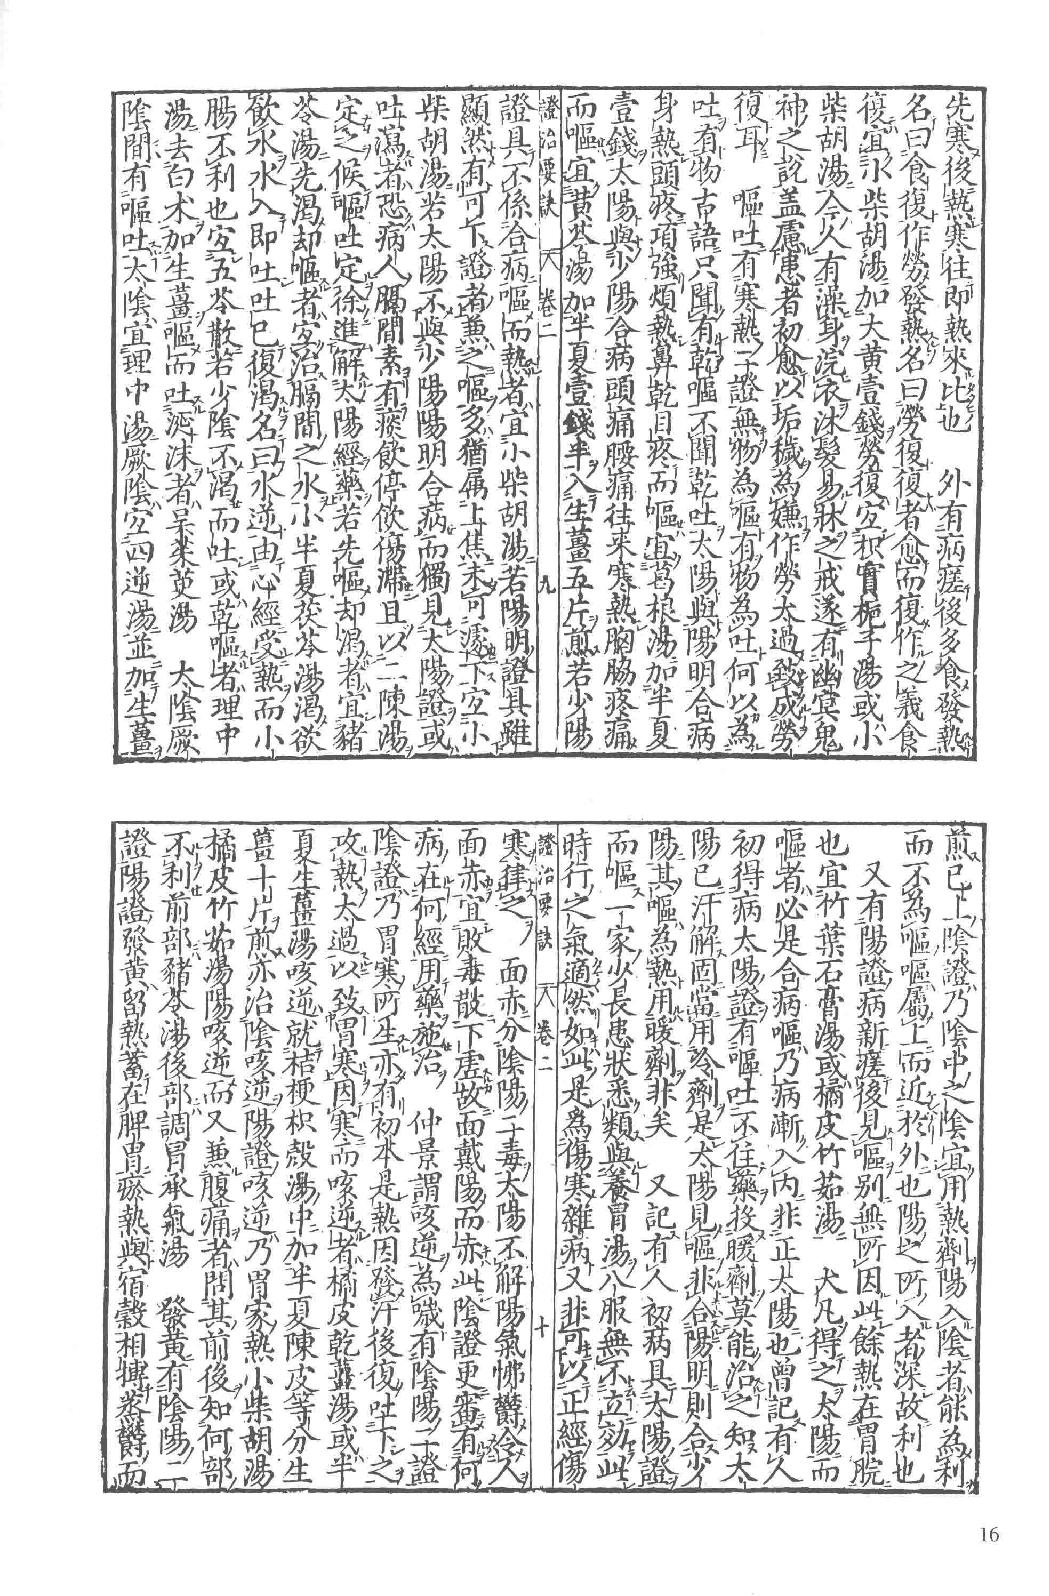 先寒後熱寒往即熱來比也　外有病瘥後多食發熱
名曰食復作勞發熱名曰勞復復者愈而復作之義食
復宜小柴胡湯加大黃壹錢勞復宜枳實梔子湯或小
柴胡湯今人有澡身浣衣沐髮易牀之戒遂有幽冥鬼
神之說蓋慮患者初愈以垢穢為嫌作勞太過致成勞
復耳　嘔吐有寒熱二證無物為嘔有物為吐何以為
吐有物古語只聞有乾嘔不聞乾吐太陽與陽明合病
身熱頭疼項強煩熱鼻乾目疼而嘔宜葛根湯加半夏
壹錢太陽與少陽合病頭痛腰痛往來寒熱胸脇疼痛
而嘔宜黃芩湯加半夏壹錢半入生薑五片煎若少陽
證治要訣　卷二　九
證具不係合病嘔而熱者宜小柴胡湯若陽明證具雖
顯然有可下證者兼之嘔多猶屬上焦未可遽下宜小
柴胡湯若太陽不與少陽陽明合病而獨見太陽證或
吐瀉者恐病人膈間素有痰飲停飲傷滯且以二陳湯
定之候嘔吐定徐進解太陽經藥若先嘔却渴者宜豬
苓湯先渴却嘔者宜治膈間之水小半夏茯苓湯渴欲
飲水水入即吐吐已復渴名曰水逆由心經受熱而小
腸不利也宜五苓散若少陰不渴而吐或乾嘔者理中
湯去白术加生薑嘔而吐涎沫者吳茱萸湯　太陰厥
陰間有嘔吐太陰宜理中湯厥陰宜四逆湯並加生薑
煎已上陰證乃陰中之陰宜用熱劑陽入陰者能為利
而不為嘔嘔屬上而近於外也陽之所入者深故利也
又有陽證病新瘥後見嘔別無所因此餘熱在胃脘
也宜竹葉石膏湯或橘皮竹茹湯　大凡得之太陽而
嘔者必是合病嘔乃病漸入內非正太陽也曾記有人
初得病太陽證有嘔吐不住藥投暖劑莫能治之知太
陽已汗解固當用冷劑是太陽見嘔非合陽明則合少
陽其嘔為熱用暖劑非矣　又記有人初病具太陽證
而嘔一家少長患狀悉類與養胃湯八服無不立効此
時行之氣適然如此是為傷寒雜病又非可以正經傷
證治要訣　卷二　十
寒律之　面赤分陰陽二毒太陽不解陽氣怫鬱令人
面赤宜敗毒散下虛故面戴陽而赤此陰證更審有何
病在何經用藥施治　仲景謂咳逆為噦有陰陽二證
陰證乃胃寒所生亦有初本是熱因發汗後復吐下之
攻熱太過以致胃寒因寒而咳逆者橘皮乾薑湯或半
夏生薑湯咳逆就桔梗枳殼湯中加半夏陳皮等分生
薑十片煎亦治陰咳逆陽證咳逆乃胃家熱小柴胡湯
橘皮竹茹湯陽咳逆而又兼腹痛者問其前後知何部
不利前部豬苓湯後部調胃承氣湯　發黃有陰陽二
證陽證發黃留熱蓄在脾胃瘀熱與宿穀相搏蒸鬱而
16